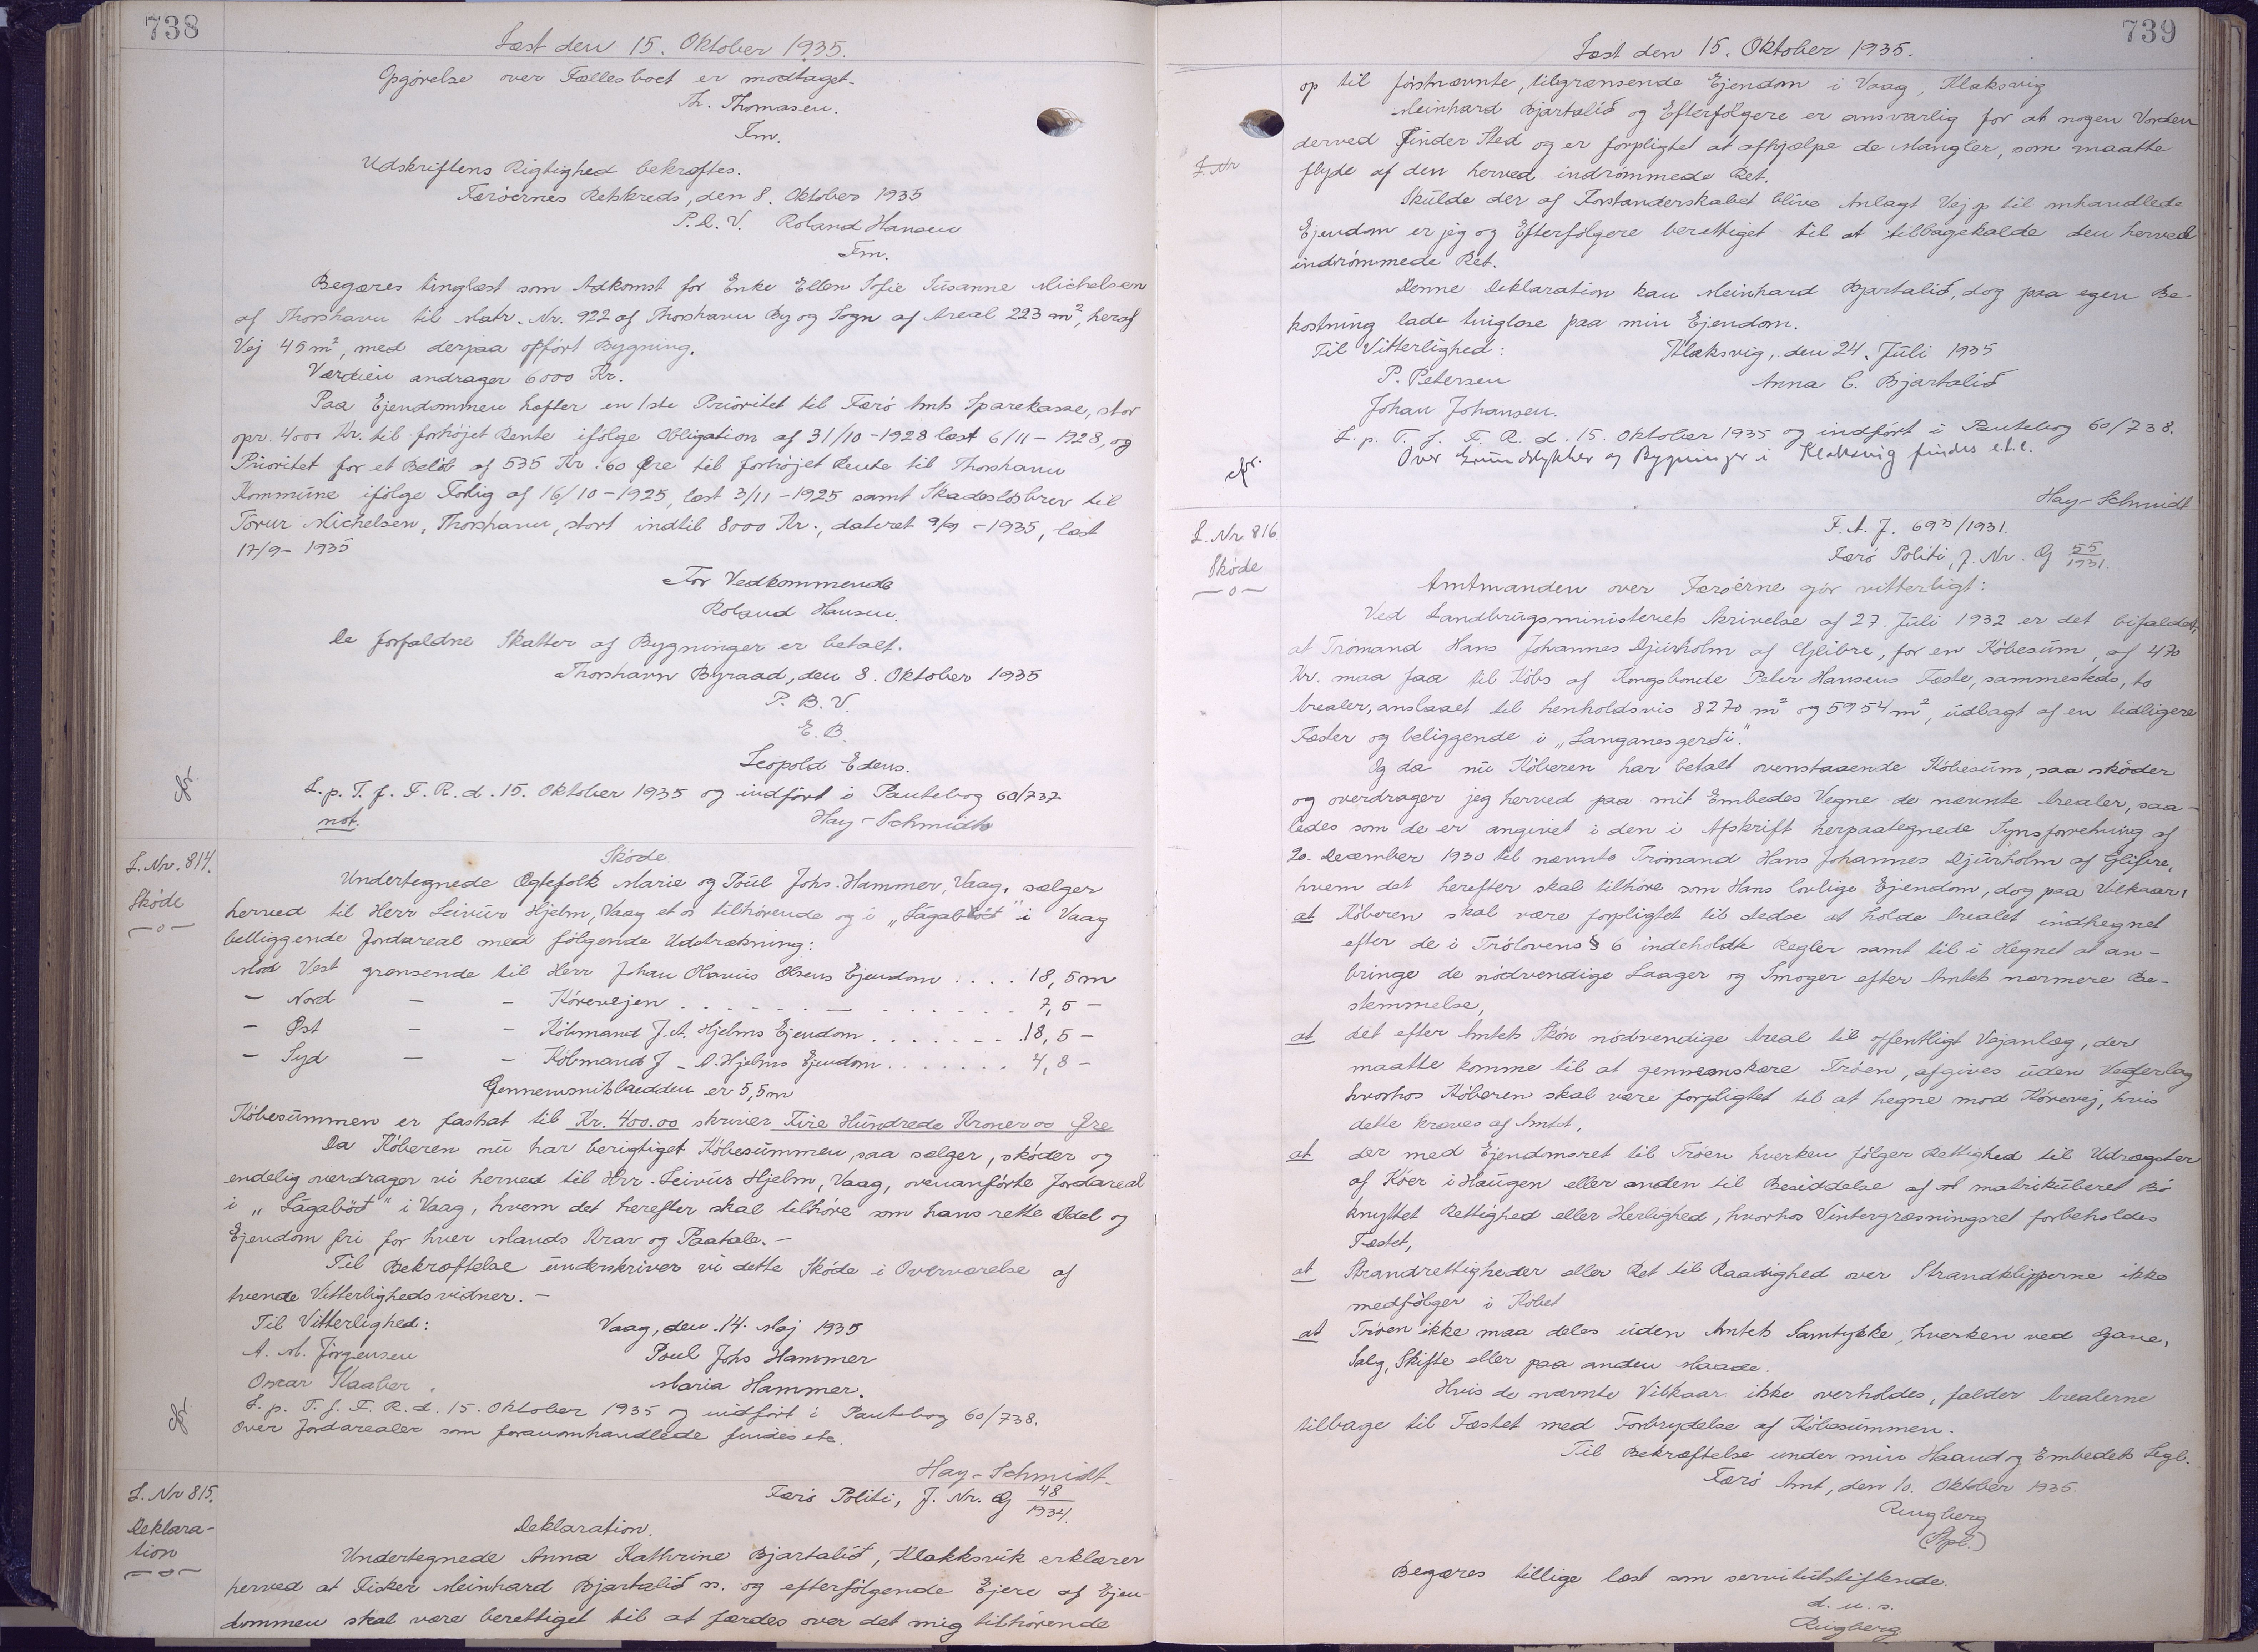 738
Læst den 15. Oktober 1935.
Opgörelse over Fællesboet er modtaget.
Th. Thomasen.
Fm.
Udskriftens Rigtighed bekræftes.
Færöernes Retskreds, den 8. Oktober 1935
P.D.V. Roland Hansen
Fm.
Begæres tinglæst som Adkomst for Enke Ellen Sofie Susanne Michelsen
af Thorshavn til Matr. Nr. 922 af Thorshavn By og Sogn af Areal 223 m², heraf
Vej 45 m², med derpaa opfört Bygning.
Værdien andrager 6000 Kr.
Paa Ejendommen hæfter en 1ste Prioritet til Færö Amts Sparekasse, stor
opr. 4000 Kr. til forhöjet Rente ifölge Obligation af 31/10-1928 læst 6/11-1928, og
Prioritet for et Belöb af 535 Kr. 60 Øre til forhöjet Rente til Thorshavn
Kommune ifölge Forlig af 16/10-1925, læst 3/11-1925 samt Skadeslösbrev til
Torur Michelsen, Thorshavn, stort indtil 8000 Kr., dateret 9/9-1935, læst
17/9-1935
For Vedkommende
Roland Hansen.
De forfaldne Skatter af Bygninger er betalt.
Thorshavn Byraad, den 8. Oktober 1935
P. B. V.
E. B.
Leopold Edens.
cfr.
L. p. T. f. F. R. d. 15. Oktober 1935 og indfört i Pantebog 60/737
not. Hay-Schmidt
L. Nr. 814.
Sköde
Sköde.
Undertegnede Ægtefolk Marie og Poul Johs. Hammer, Vaag, sælger
herved til Herr Leivur Hjelm, Vaag et os tilhörende og i „Lágaböð" i Vaag
belliggende Jordareal med fölgende Udstrækning:
Mod Vest grænsende til Herr Johan Olavus Olsens Ejendom .... 18,5 m
- Nord - - Körevejen ....... 7,5 -
- Øst - - Köbmand J.A. Hjelms Ejendom ....... 18,5 -
- Syd - - Köbmand J-A. Hjelms Ejendom ....... 4,8 -
Gennemsnitbredden er 5,5 m
Köbesummen er fastsat til Kr. 400.00 skriver Fire Hundrede Kroner 00 Øre
Da Köberen nu har berigtiget Köbesummen, saa sælger, sköder og
endelig overdrager vi herved til Hrr. Leivur Hjelm, Vaag, ovenanförte Jordareal
i „Lágaböð" i Vaag, hvem det herefter skal tilhöre som hans rette Odel og
Ejendom fri for hver Mands Krav og Paatale.-
Til Bekræftelse underskriver vi dette Sköde i Overværelse af
tvende Vitterlighedsvidner.-
Til Vitterlighed: Vaag, den 14. Maj 1935
A. M. Jörgensen Poul Johs Hammer
Oscar Kaaber. Maria Hammer.
cfr.
L. p. T. f. F. R. d. 15. Oktober 1935 og indfört i Pantebog 60/738.
Over Jordarealer som foranomhandlede findes etc.
Hay-Schmidt
L. Nr 815.
Deklara-
tion
Færö Politi, J. Nr. G 48/1934.
Deklaration.
Undertegnede Anna Kathrine Bjartalíð, Klakksvík erklærer
herved at Fisker Meinhard Bjartalíð s. og efterfölgende Ejere af Ejen
dommen skal være berettiget til at færdes over det mig tilhörende
739
Læst den 15. Oktober 1935.
op til förstnævnte, tilgrænsende Ejendom i Vaag, Klaksvig
Meinhard Bjartalíð og Efterfölgere er ansvarlig for at nogen Vorden
derved finder Sted og er forpligtet at afhjælpe de Mangler, som maatte
flyde af den herved indrömmede Ret.
L. Nr
Skulde der af Forstanderskabet blive Anlagt Vej p til omhandlede
Ejendom er jeg og Efterfölgere berettiget til at tilbagekalde den herved
indrömmede Ret.
Denne Deklaration kan Meinhard Bjartalíð, dog paa egen Be-
kostning lade tinglæse paa min Ejendom.
Til Vitterlighed: Klaksvig, den 24. Juli 1935
P. Petersen Anna C. Bjartalíð
Johan Johansen.
L. p. T. f. F. R. d. 15. Oktober 1935 og indfört i Pantebog 60/738.
cfr.
Over Grundstykker og Bygninger i Klaksvig findes etc.
Hay-Schmidt
L. Nr 816.
Sköde
F. A. J. 69/1931.
Færö Politi, J. Nr. G 55/1931.
Amtmanden over Færöerne gör vitterligt:
Ved Landbrugsministeriets Skrivelse af 27. Juli 1932 er det bifaldet,
at Trömand Hans Johannes Djurholm af Glibre, for en Köbesum, af 470
Kr. maa faa til Köbs af Kongsbonde Peter Hansens Fæste, sammesteds, to
Arealer, anslaaet til henholdsvis 8270 m² og 5954 m², udlagt af en tidligere
Fæster og beliggende i „Langanesgerði".
Og da nu Köberen har betalt ovenstaaende Köbesum, saa sköder
og overdrager jeg herved paa mit Embedes Vegne de nævnte Arealer, saa-
ledes som de er angivet i den i Afskrift herpaategnede Synsforretning af
20. December 1930 til nævnte Trömand Hans Johannes Djurholm af Glibre,
hvem det herefter skal tilhöre som Hans lovlige Ejendom, dog paa Vilkaar:
at Köberen skal være forpligtet til stedse at holde Arealet indhegnet
efter de i Trölovens § 6 indeholdte Regler samt til i Hegnet at an-
bringe de nödvendige Laager og Smoger efter Amtets nærmere Be-
stemmelse,
at det efter Amtets Skön nödvendige Areal til offentligt Vejanlæg, der
maatte komme til at gennemskære Tröen, afgives uden Vederlag
hvorhos Köberen skal være forpligtet til at hegne mod Körevej, hvis
dette kræves af Amtet,
at der med Ejendomsret til Tröen hverken fölger Rettighed til Udrægster
af Köer i Haugen eller anden til Besiddelse af matrikuleret Bö
knyttet Rettighed eller Herlighed, hvorhos Vintergræsningsret forbeholdes
Fæstet,
at Strandrettigheder eller Ret til Raadighed over Strandklipperne ikke
medfölger i Köbet
at Tröen ikke maa deles uden Amtets Samtykke, hverken ved Gave,
Salg, Skifte eller paa anden Maade.
Hvis de nævnte Vilkaar ikke overholdes, falder Arealerne
tilbage til Fæstet med Forbrydelse af Köbesummen.
Til Bekræftelse under min Haand og Embedets Segl.
Færö Amt, den 10. Oktober 1935.
Ringberg
Begæres tillige læst som servitutstiftende.
d. u. s.
Ringberg.